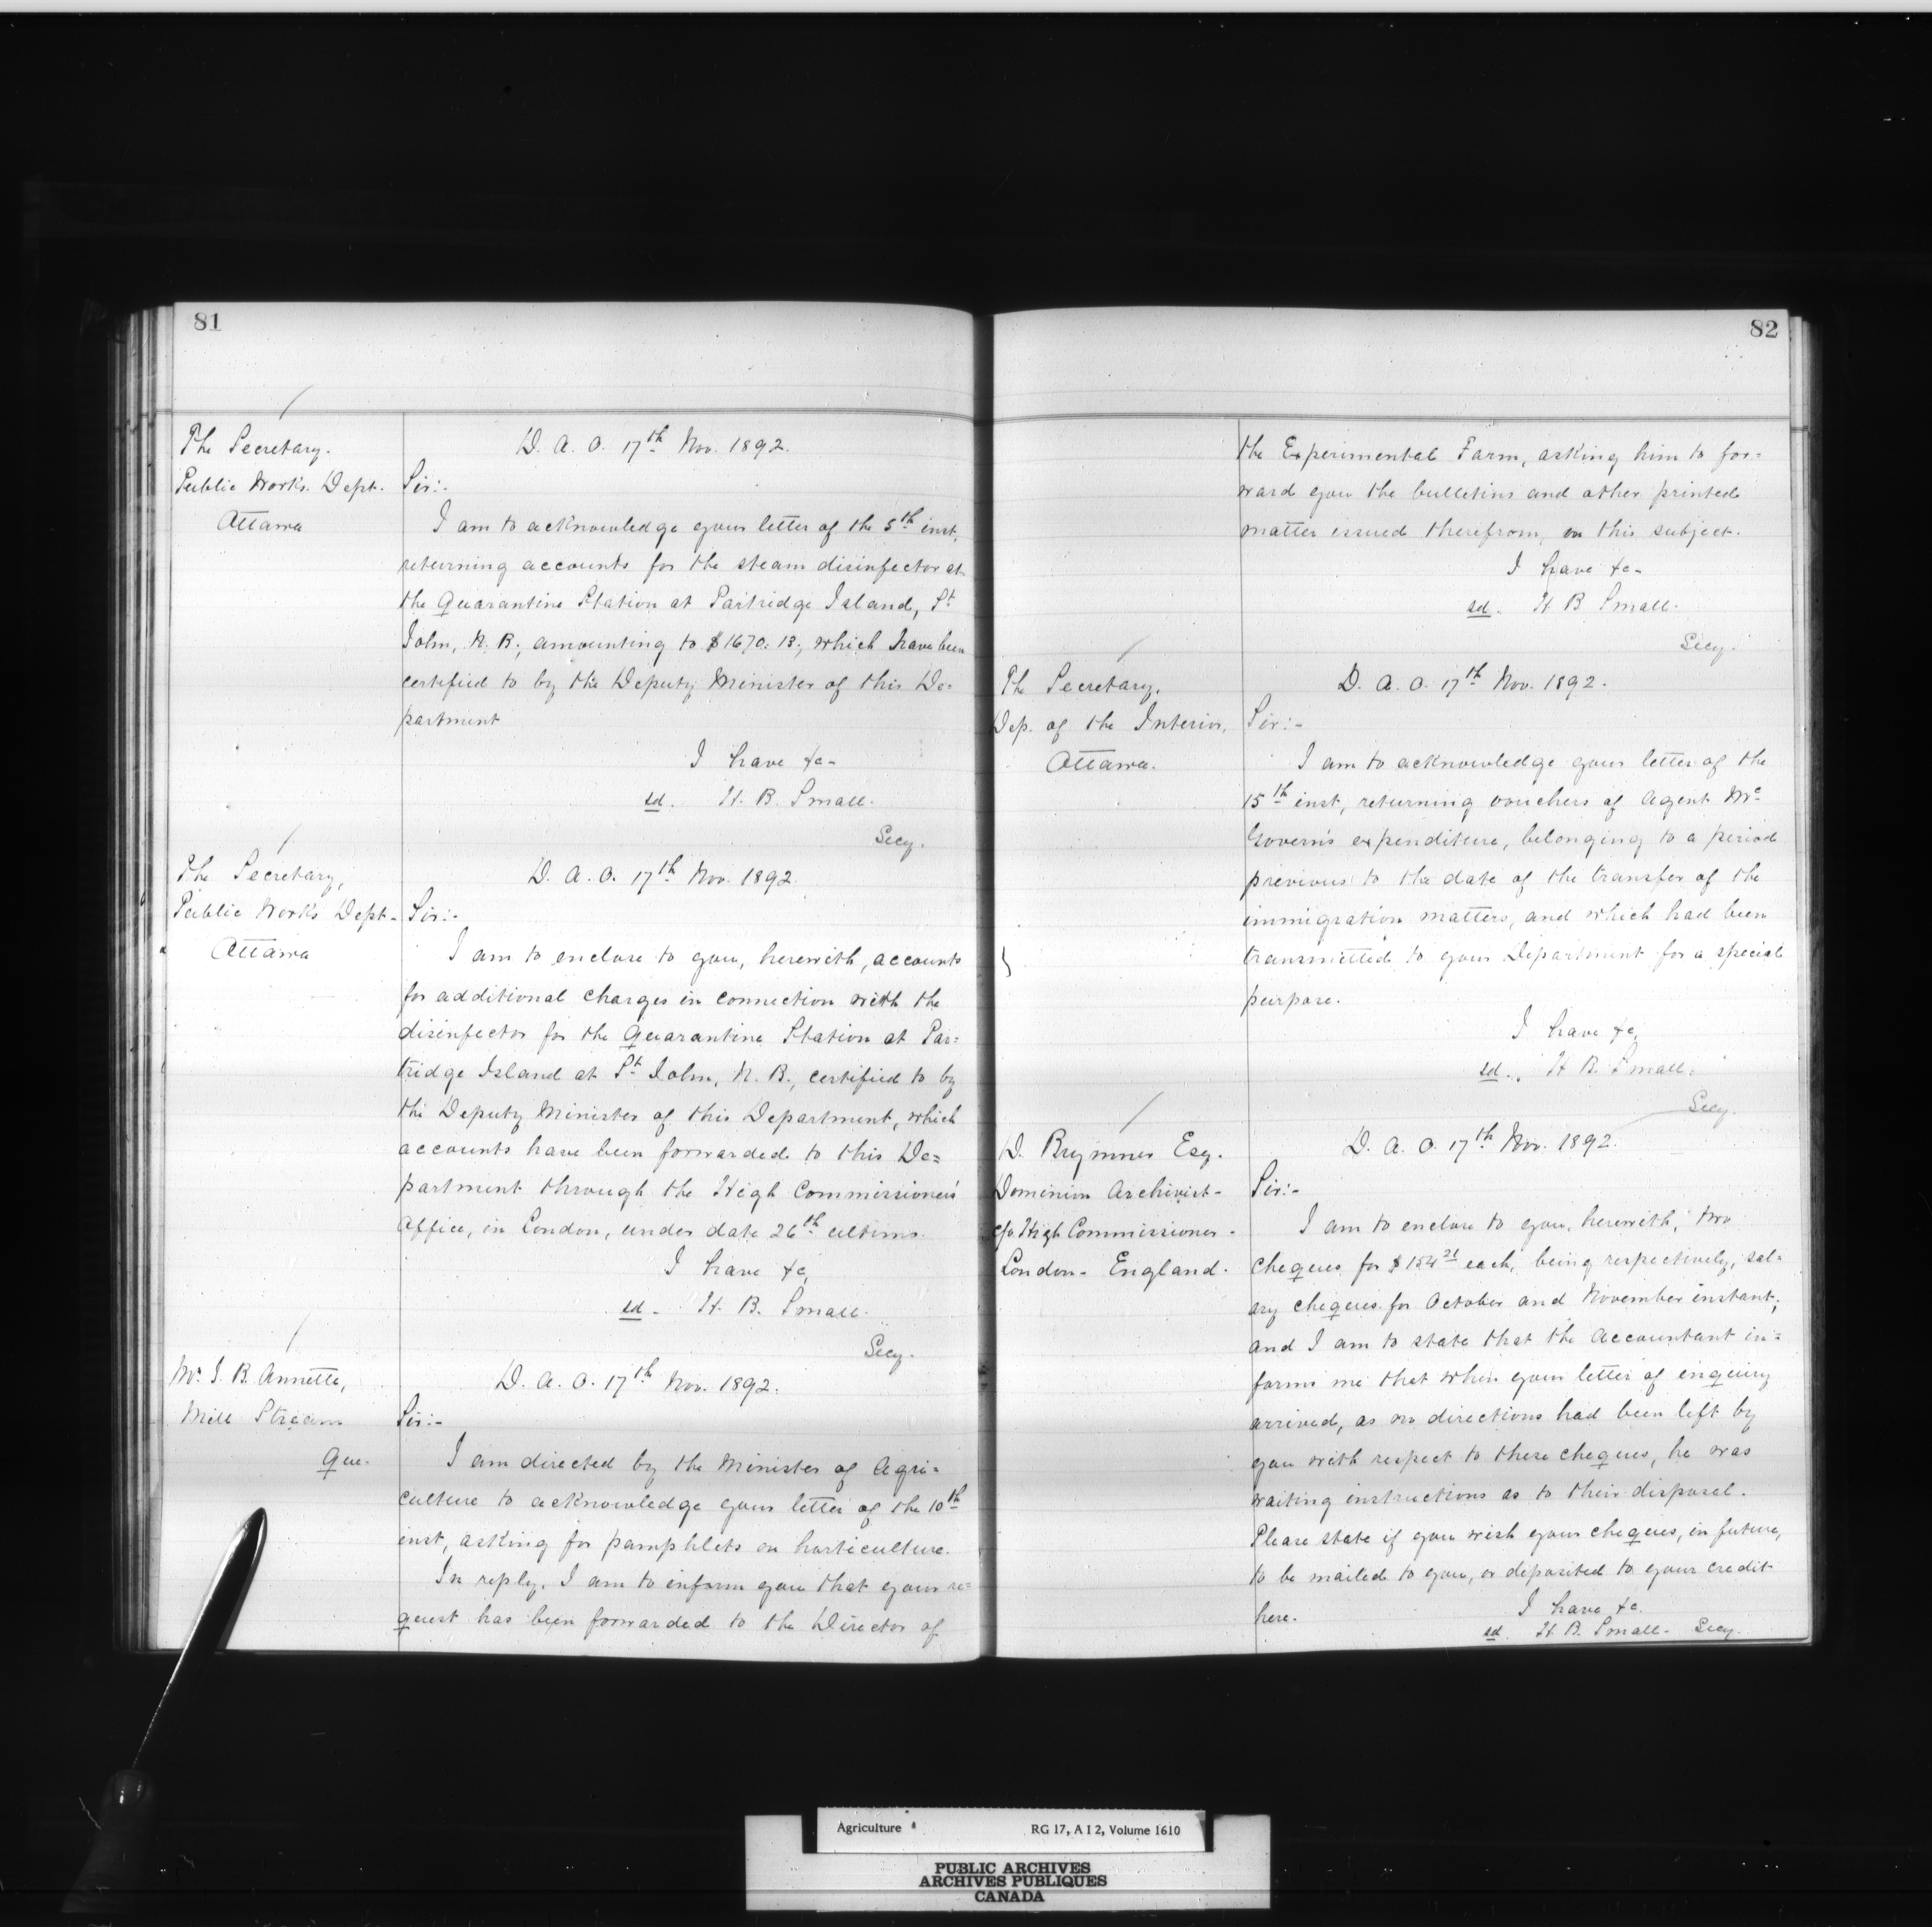 81
The Secretary.
Public Works. Dept.
Ottawa
D. A. O. 17th Nov. 1892.
Sir:-
I am to acknowledge your letter of the 5th inst,
returning accounts for the steam disinfector at
the Quarantine Station at Partridge Island, St
John, N. B., amounting to $1670.13, which have been
certified to by the Deputy Minister of this De=
partment
I have &c-
sd. H. B. Small.
Secy.
The Secretary,
Public Works Dept-
Ottawa
D. A. O. 17th Nov. 1892.
Sir:-
I am to enclose to you, herewith, accounts
for additional charges in connection with the
disinfector for the Quarantine Station at Par=
tridge Island at St John, N. B., certified to by
the Deputy Minister of this Department, which
accounts have been forwarded to this De=
partment through the High Commissioner's
Office, in London, under date 26th ultimo.
I have &c,
sd- H. B. Small.
Secy.
Mr. J. B. Annette,
Mill Stream
Que.
D. A. O. 17th Nov. 1892.
Sir:-
I am directed by the Minister of Agri=
culture to acknowledge your letter of the 10th
inst, asking for pamphlets on horticulture.
In reply, I am to inform you that your re=
quest has been forwarded to the Director of
82
the Experimental Farm, asking him to for=
ward you the bulletins and other printed
matter issued therefrom, on this subject.
I have &c-
sd. H B Small.
Secy.
The Secretary,
Dep. of the Interior,
Ottawa.
D. A. O. 17th Nov. 1892.
Sir:-
I am to acknowledge your letter of the
15th inst, returning vouchers of Agent Mc
Govern's expenditure, belonging to a period
previous to the date of the transfer of the
immigration matters, and which had been
transmitted to your Department for a special
purpose.
I have &c,
sd. H B. Small.
Secy.
D. Brymner Esq.
Dominion Archivist-
c/o High Commissioner-
London- England.
D. A. O. 17th Nov. 1892.
Sir:-
I am to enclose to you, herewith, two
cheques for $154 21 each, being respectively, sal=
ary cheques for October and November instant;
and I am to state that the Accountant in=
forms me that when your letter of enquiry
arrived, as no directions had been left by
you with respect to these cheques, he was
waiting instructions as to their disposal.
Please state if you wish your cheques, in future,
to be mailed to you, or deposited to your credit
here.
I have &c.
sd. H. B. Small- Secy.
Agriculture
RG 17, A I 2, Volume 1610
PUBLIC ARCHIVES
ARCHIVES PUBLIQUES
CANADA